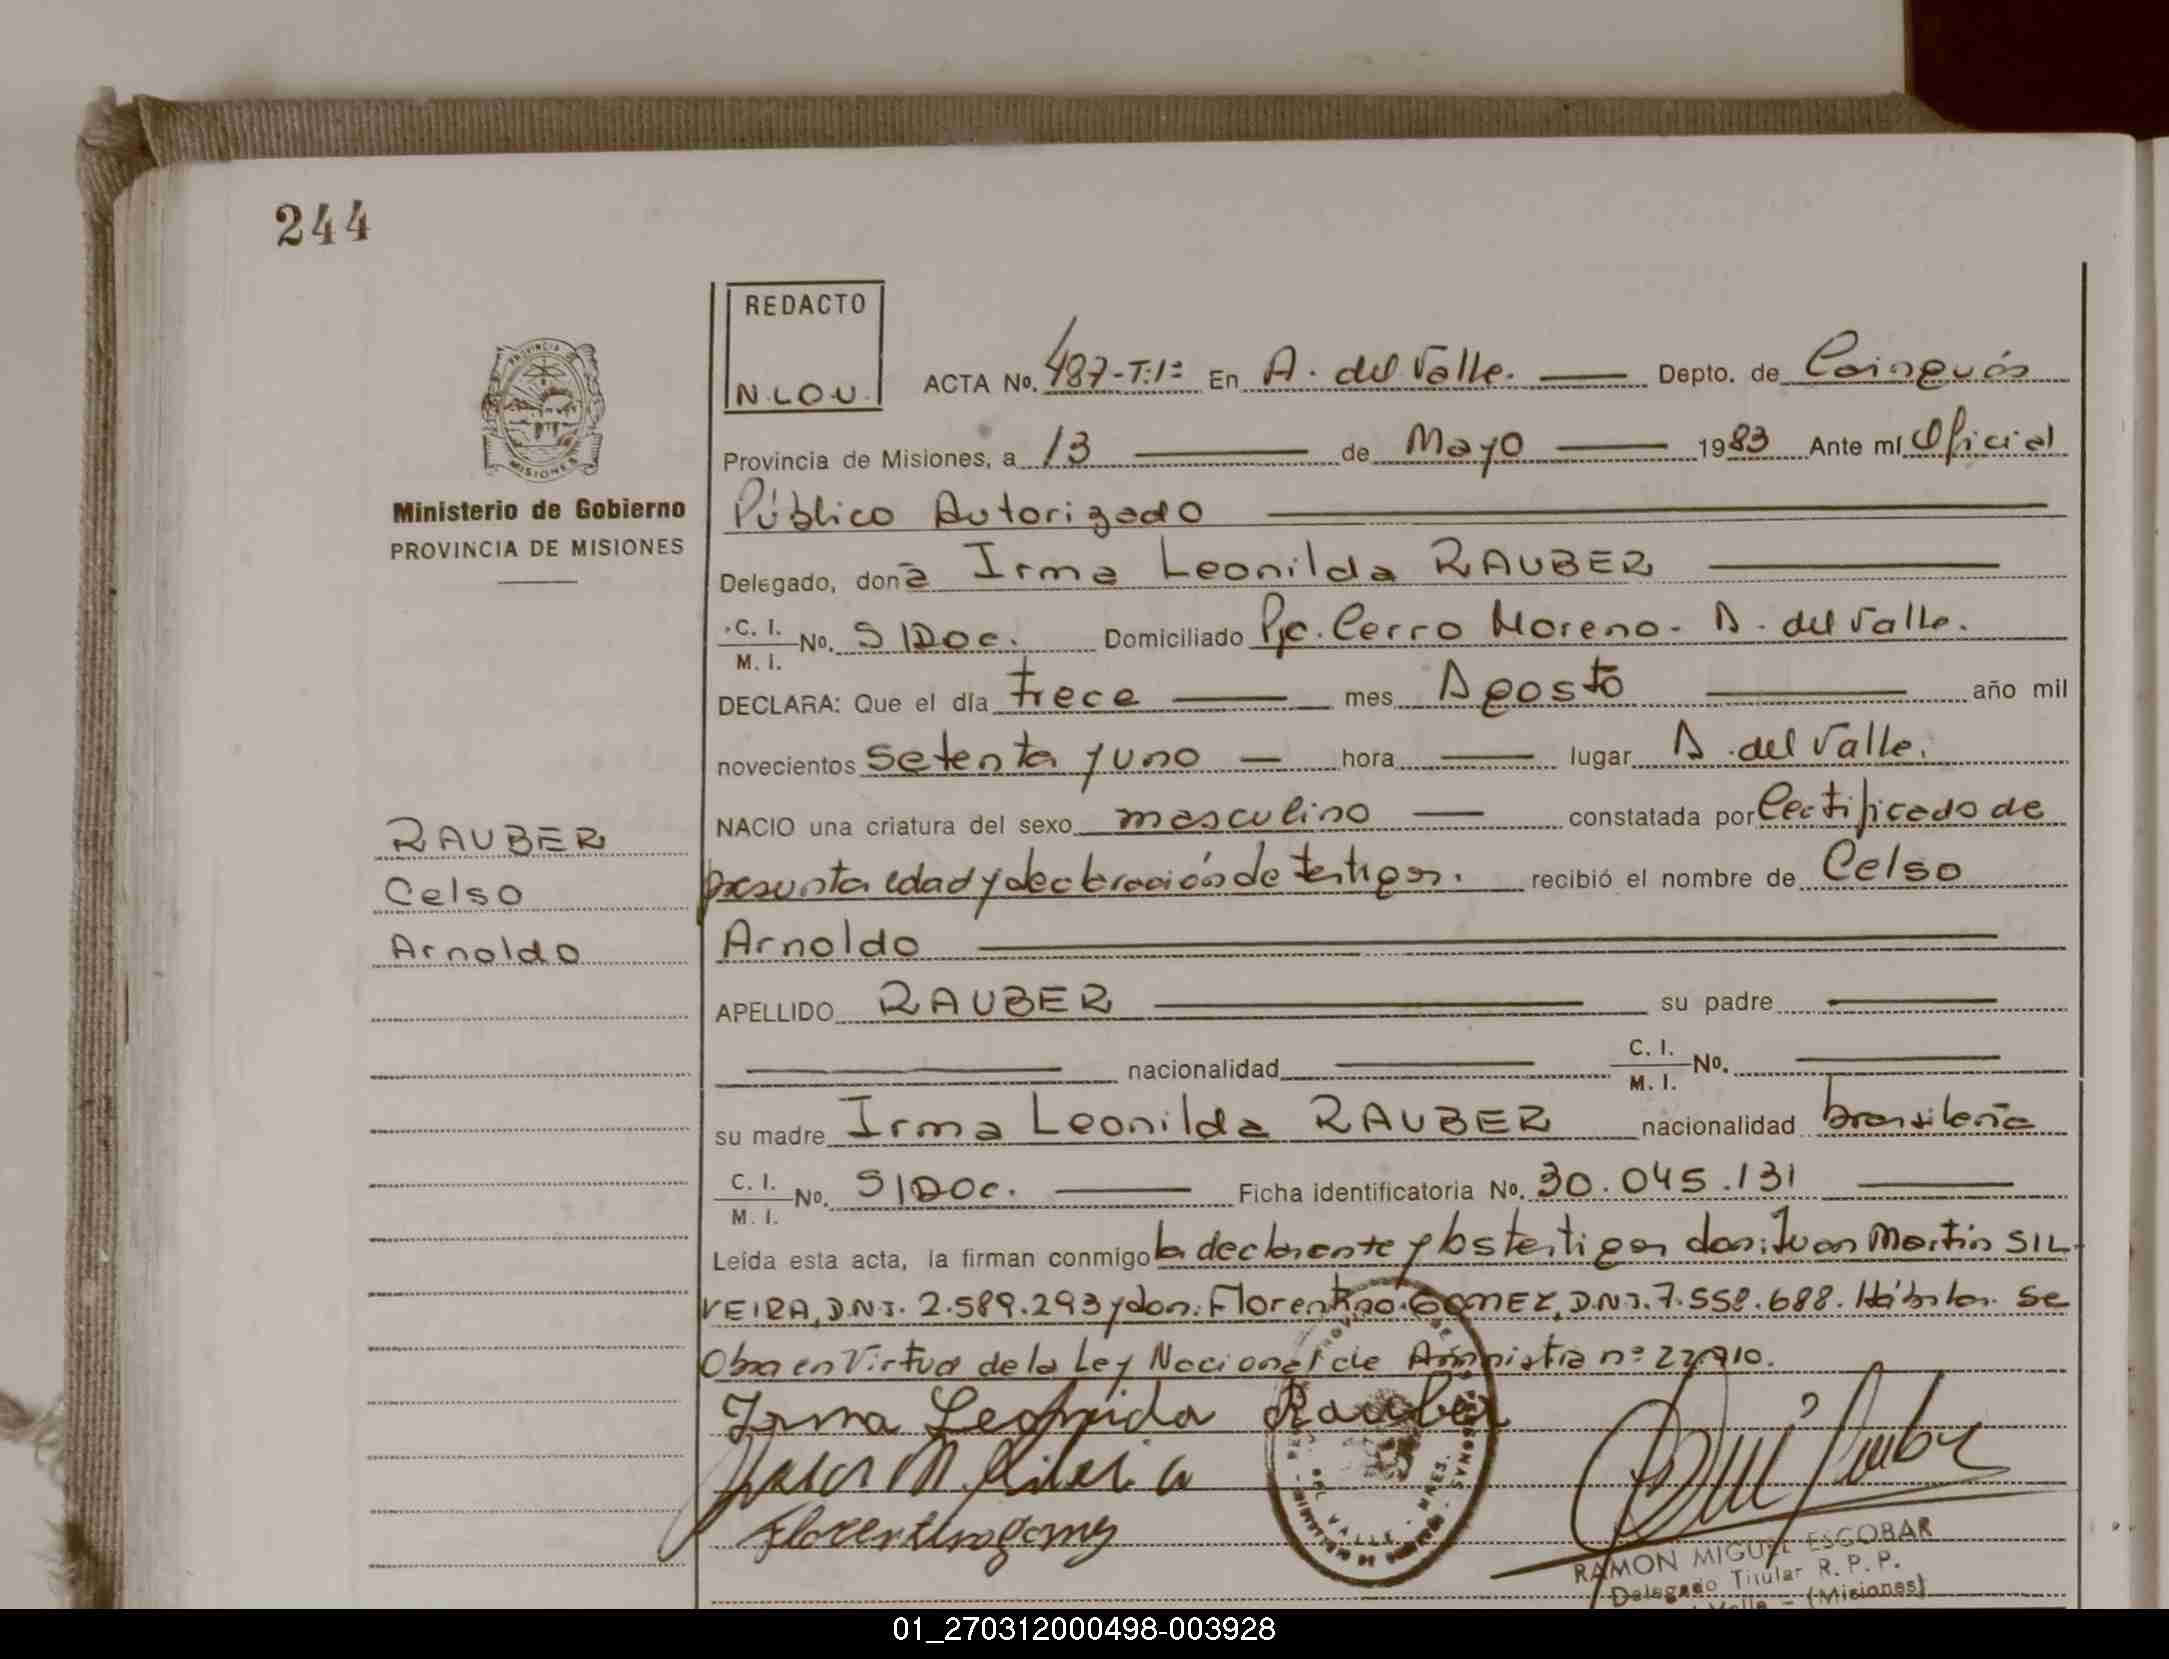 244
REDACTO
N.LO.U.
PROVINCIA DE
MISIONES
Ministerio de Gobierno
PROVINCIA DE MISIONES
ACTA No. 487-T:1º En A. del Valle. Depto. de Cainguás
Provincia de Misiones, a 13 de Mayo 1983 Ante mí Oficial
Público Autorizado
Delegado, doña Irma Leonilda RAUBER
C. I. / M. I. No. S/Doc. Domiciliado Pje. Cerro Moreno - A. del Valle.
DECLARA: Que el día trece mes Agosto año mil
novecientos setenta y uno hora lugar A. del Valle.
NACIO una criatura del sexo masculino constatada por Certificado de
presunta edad y declaración de testigos. recibió el nombre de Celso
Arnoldo
RAUBER
Celso
Arnoldo
APELLIDO RAUBER su padre
nacionalidad C. I. / M. I. No.
su madre Irma Leonilda RAUBER nacionalidad brasileña
C. I. / M. I. No. S/Doc. Ficha identificatoria No. 30.045.131
Leída esta acta, la firman conmigo la declarante y los testigos don: Juan Martin SIL
VEIRA, D.N.I. 2.589.293 y don: Florentino GOMEZ, D.N.I. 7.558.688. Hábiles. Se
Obra en Virtud de la Ley Nacional de Amnistia nº 22.710.
Irma Leonida Rauber
Juan M. Silveira
Florentino gomez
RAMON MIGUEL ESCOBAR
Delegado Titular R. P. P.
Valle - (Misiones)
01_270312000498-003928